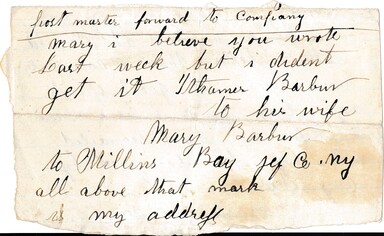 post master forward to Company
Mary i believe you wrote
Last week but i dident
get it Ithamer Barbur
to his wife
Mary Barbur
to Millins Bay Jef Co. ny
all above that mark
is my address